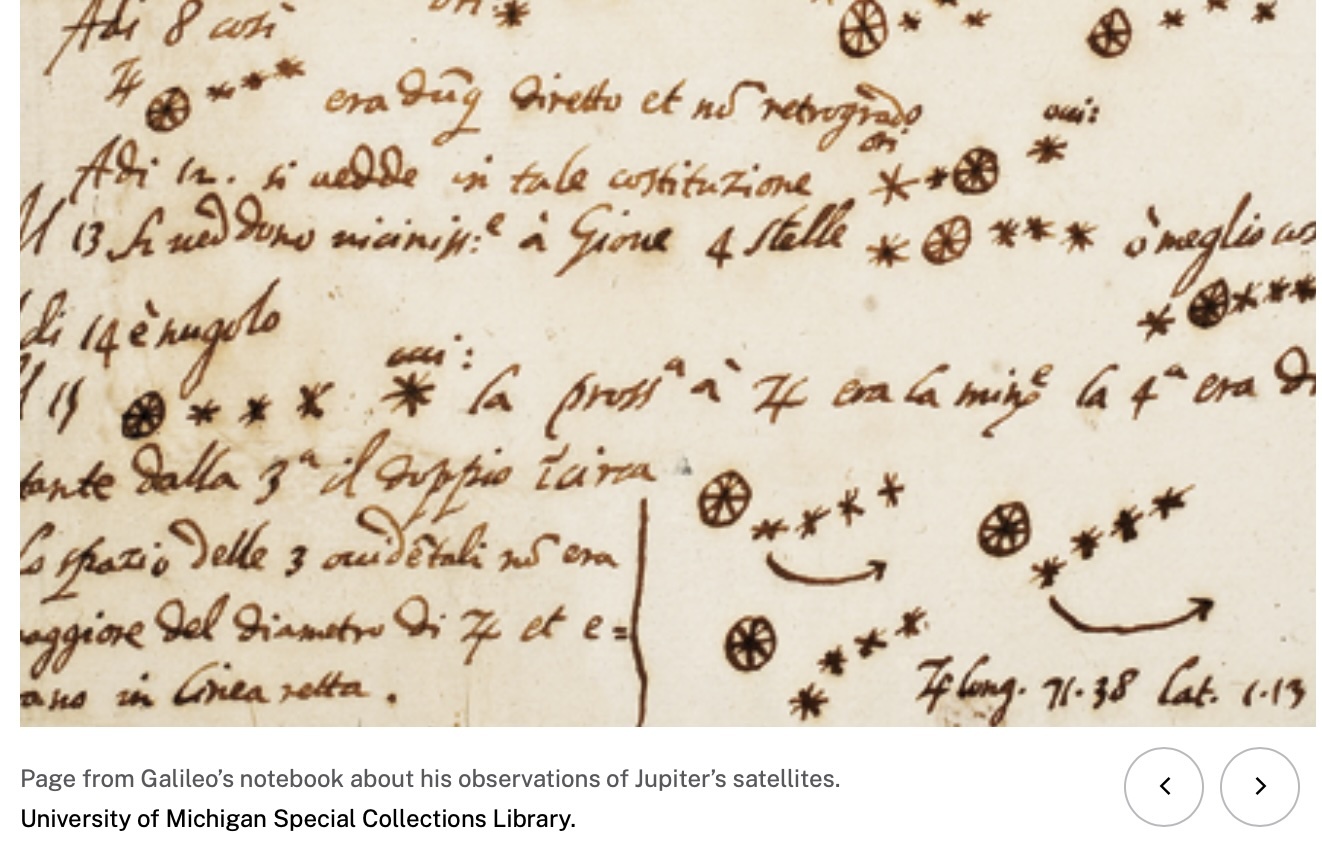 Adi 8 così
ori.
♃ era dũq diretto et nõ retrogrado
occi:
ori.
Adi 12. si vedde in tale costituzione
Il 13 si veddono vicinissi:ᵉ à Giove 4 stelle ò meglio cos
di 14 è nugolo
occi:
Il 15 la prossᵃ à ♃ era la minᵉ la 4ᵃ era di
tante dalla 3ᵃ il doppio ĩcirca
Lo spazio delle 3 occidẽtali nõ era
maggiore del diametro di ♃ et e=
ano in linea retta.
♃ long. 71.38 lat. 1.13
Page from Galileo’s notebook about his observations of Jupiter’s satellites.
University of Michigan Special Collections Library.